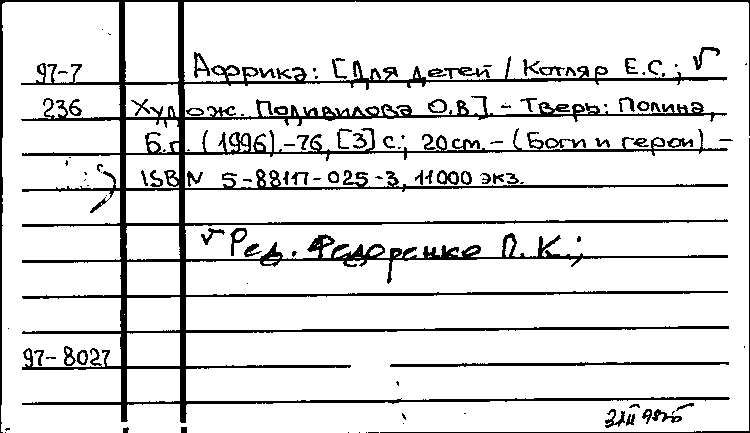 97-7 Африка: [Для детей / Котляр Е.С.; √
236 Худож. Поливилова О.В.]. - Тверь: Полина,
Б.г. (1996). - 76, [3] с.; 20 см. - (Боги и герои). -
ISBN 5-88117-025-3, 11000 экз.
√ Ред. Федоренко П.К.;
97-8027